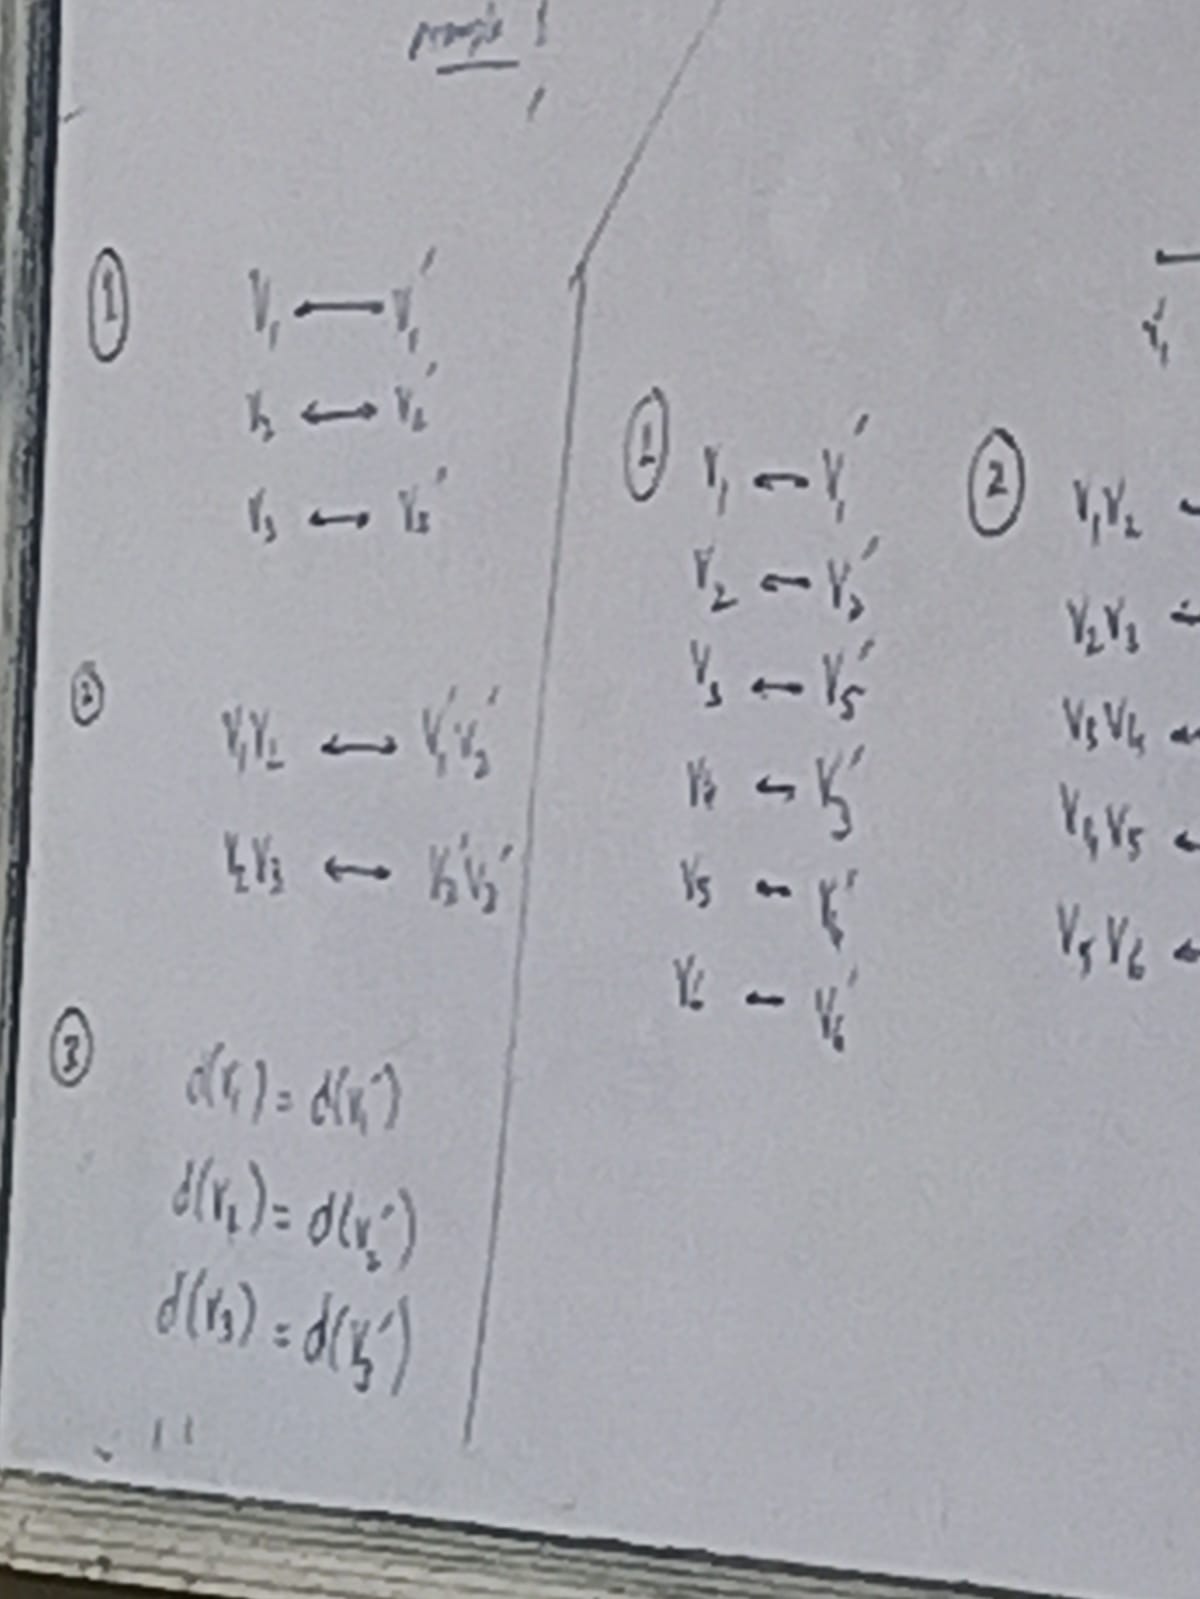 ①
V₁ ⟷ V₁′
V₂ ⟷ V₂′
V₃ ⟷ V₃′
②
V₁V₂ ⟷ V₁′V₂′
V₂V₃ ⟷ V₂′V₃′
③
d(V₁) = d(V₁′)
d(V₂) = d(V₂′)
d(V₃) = d(V₃′)
V₁′
①
V₁ ⟷ V₁′
V₂ ⟷ V₂′
V₃ ⟷ V₅′
V₄ ⟷ V₃′
V₅ ⟷
V₆ ⟷ V₆′
②
V₁V₂
V₂V₃
V₃V₄
V₄V₅
V₅V₆